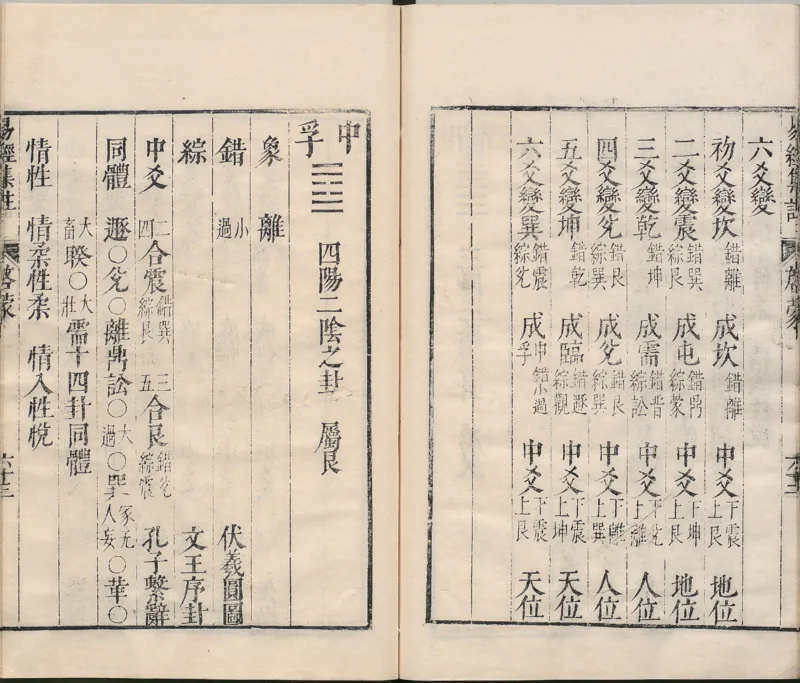 六爻變
初爻變坎 錯離 成坎 錯離 中爻 下震上艮 地位
二爻變震 錯巽綜艮 成屯 錯鼎綜蒙 中爻 下坤上艮 地位
三爻變乾 錯坤 成需 錯晉綜訟 中爻 下兌上離 人位
四爻變兌 錯艮綜巽 成兌 錯艮綜巽 中爻 下離上巽 人位
五爻變坤 錯乾 成臨 錯遯綜觀 中爻 下震上坤 天位
六爻變巽 錯震綜兌 成中孚 錯小過 中爻 下震上艮 天位
中孚 ䷼ 四陽二陰之卦 屬艮
象 離
錯 小過 伏羲圓圖
綜 文王序卦
中爻 二四合震 錯巽綜艮 三五合艮 錯兌綜震 孔子繫辭
同體 遯○兌○離鼎訟○大過○巽家人无妄○革○
大畜睽○大壯需十四卦同體
情性 情柔性柔 情入性悅
易經集註 啓蒙 六十三